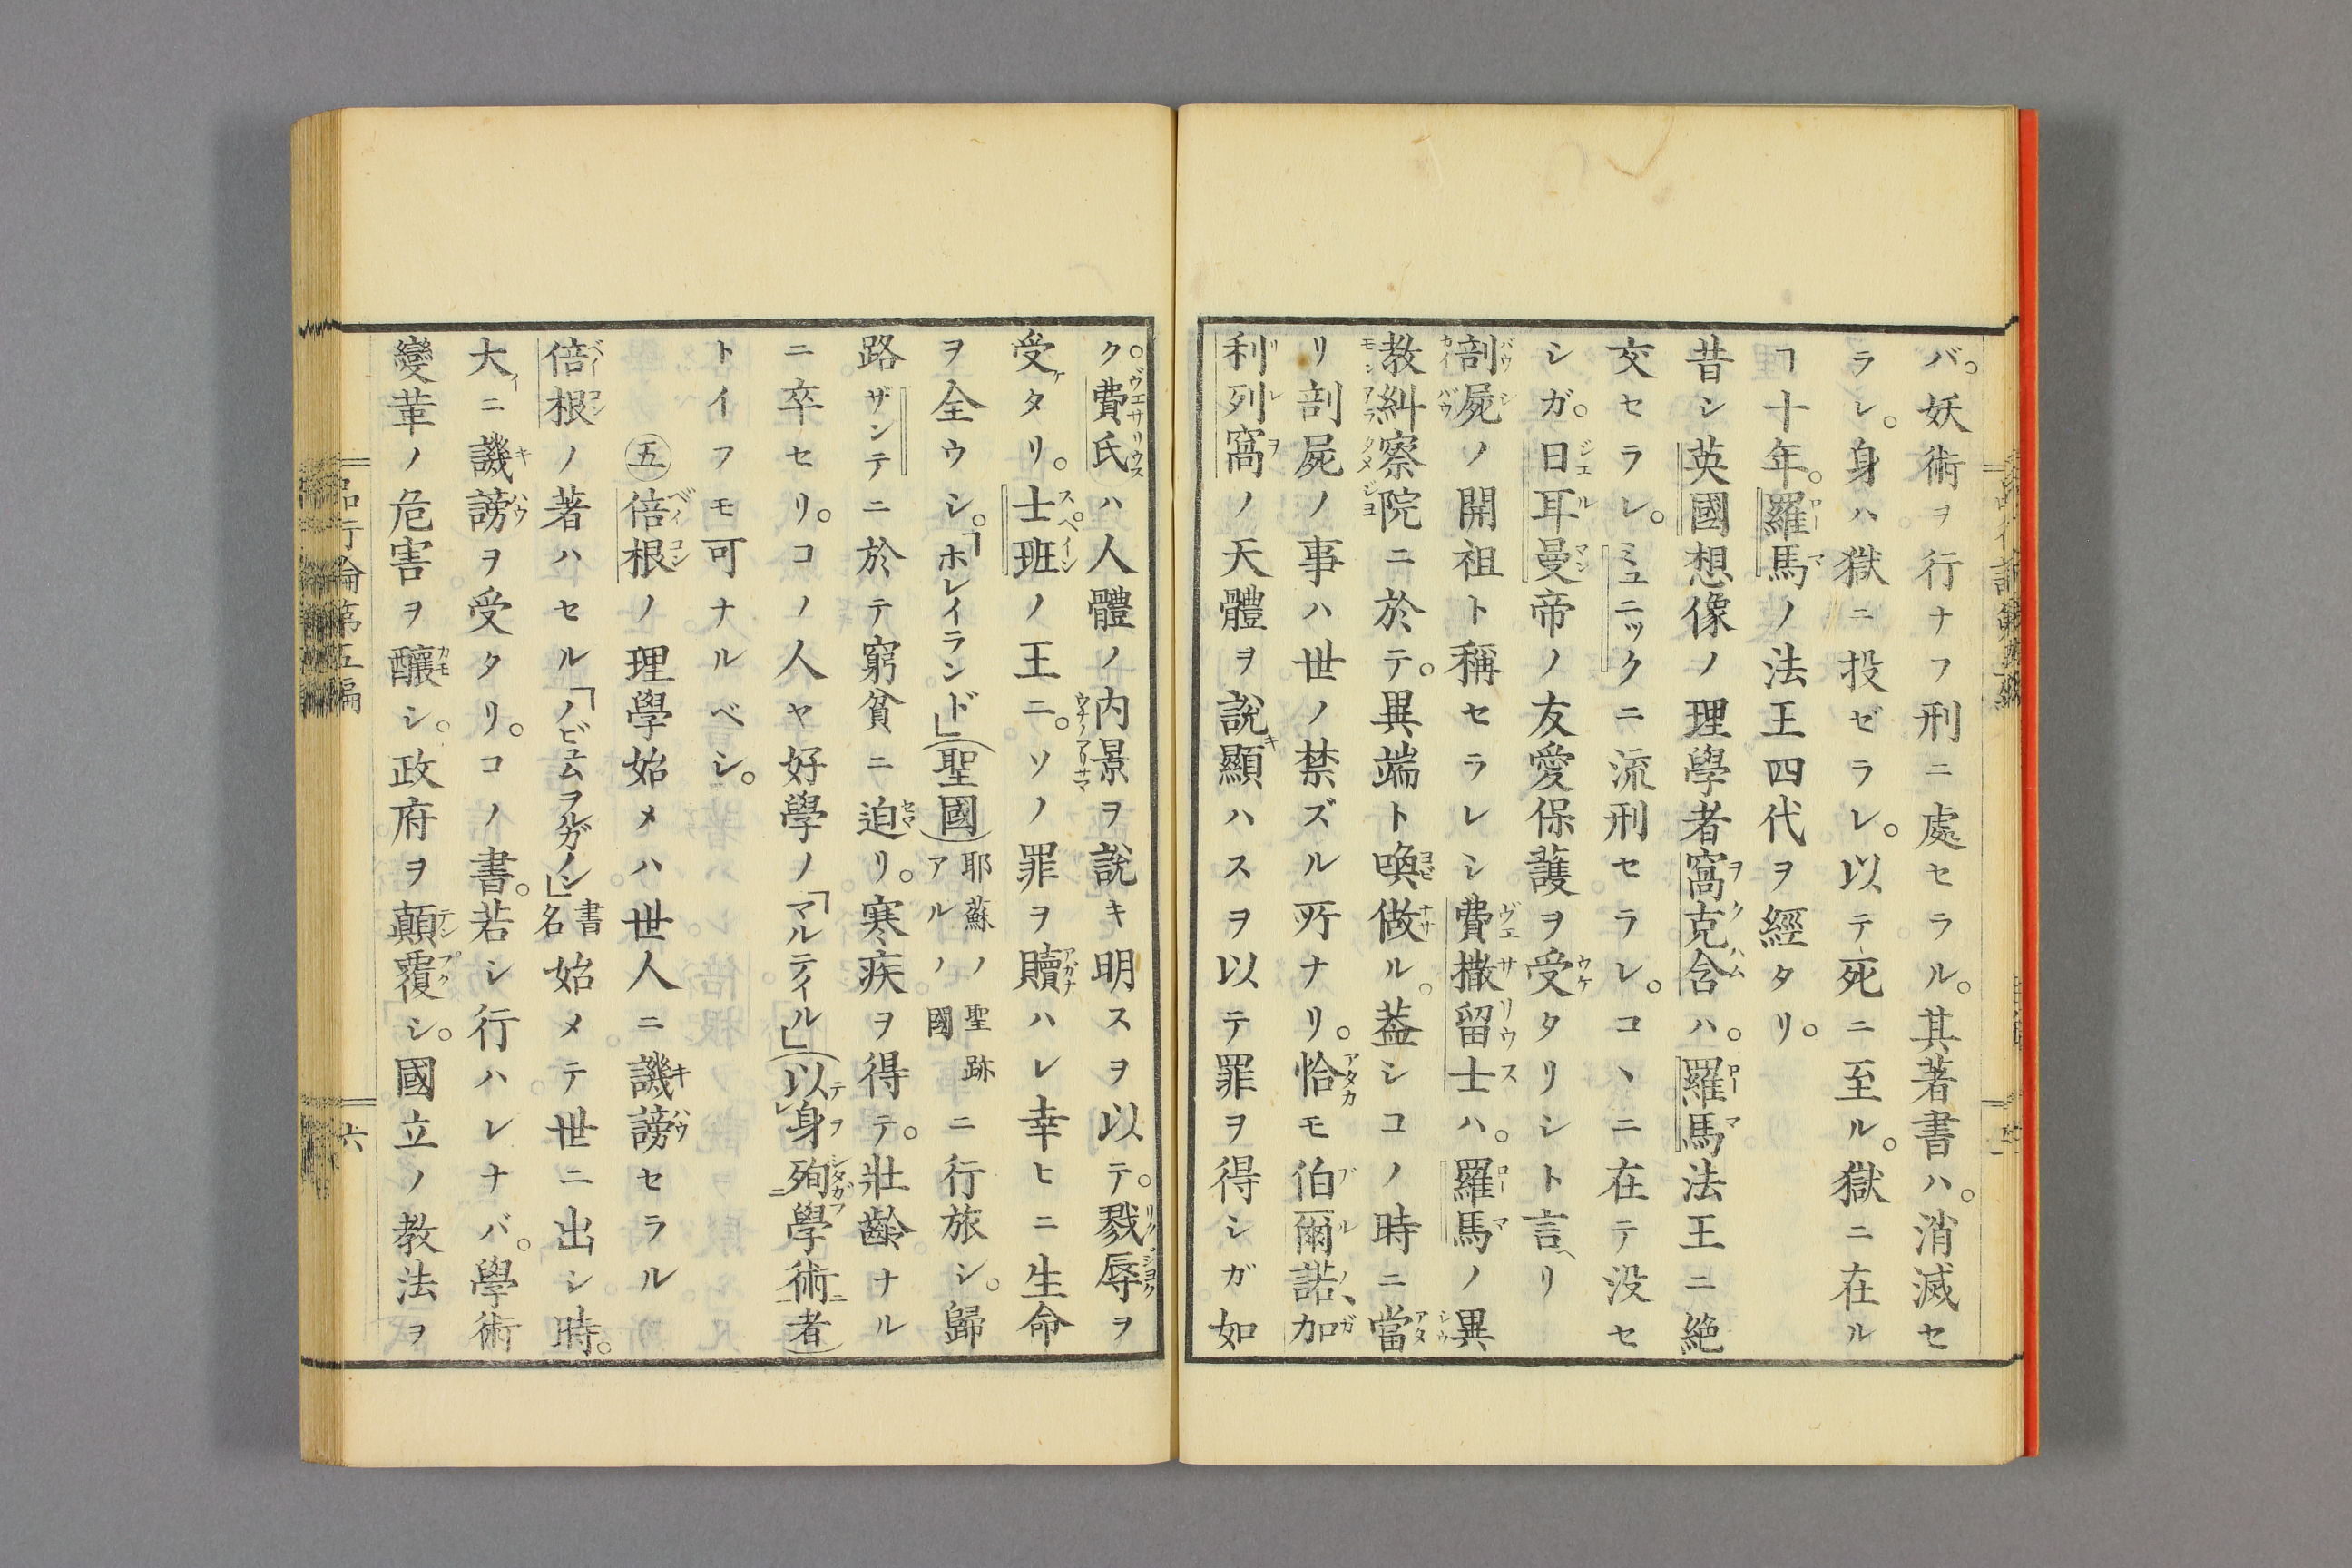 バ。妖術ヲ行ナフ刑ニ處セラル。其著書ハ。消滅セ
ラレ。身ハ獄ニ投ゼラレ。以テ死ニ至ル。獄ニ在ル
ヿ十年。羅馬ノ法王四代ヲ經タリ。
昔シ英國想像ノ理學者窩克含ハ。羅馬法王ニ絶
交セラレ。ミユニックニ流刑セラレ。コヽニ在テ没セ
シガ。日耳曼帝ノ友愛保護ヲ受タリシト言ヘリ
剖屍ノ開祖ト稱セラレシ費撒留士ハ。羅馬ノ異
教糾察院ニ於テ。異端ト喚做ル。葢シコノ時ニ當
リ剖屍ノ事ハ世ノ禁ズル所ナリ。恰モ伯爾諾加
利列窩ノ天體ヲ說顯ハスヲ以テ罪ヲ得シガ如
ク。費氏ハ人體ノ內景ヲ說キ明スヲ以テ。戮辱ヲ
受ケタリ。士班ノ王ニ。ソノ罪ヲ贖ハレ幸ヒニ生命
ヲ全ウシ。「ホレイランド」(聖國)耶蘇ノ聖跡アルノ國ニ行旅シ。歸
路ザンテニ於テ窮貧ニ迫リ。寒疾ヲ得テ。壯齡ナル
ニ卒セリ。コノ人ヤ好學ノ「マルテイル」(以レ身殉二學術一者)
トイフモ可ナルベシ。
㊄倍根ノ理學始メハ世人ニ譏謗セラル
倍根ノ著ハセル「ノビュムヲルガノン」書名始メテ世ニ出シ時。
大イニ譏謗ヲ受タリ。コノ書。若シ行ハレナバ。學術
變革ノ危害ヲ釀シ。政府ヲ顛覆シ。國立ノ教法ヲ
品行論第五編
六